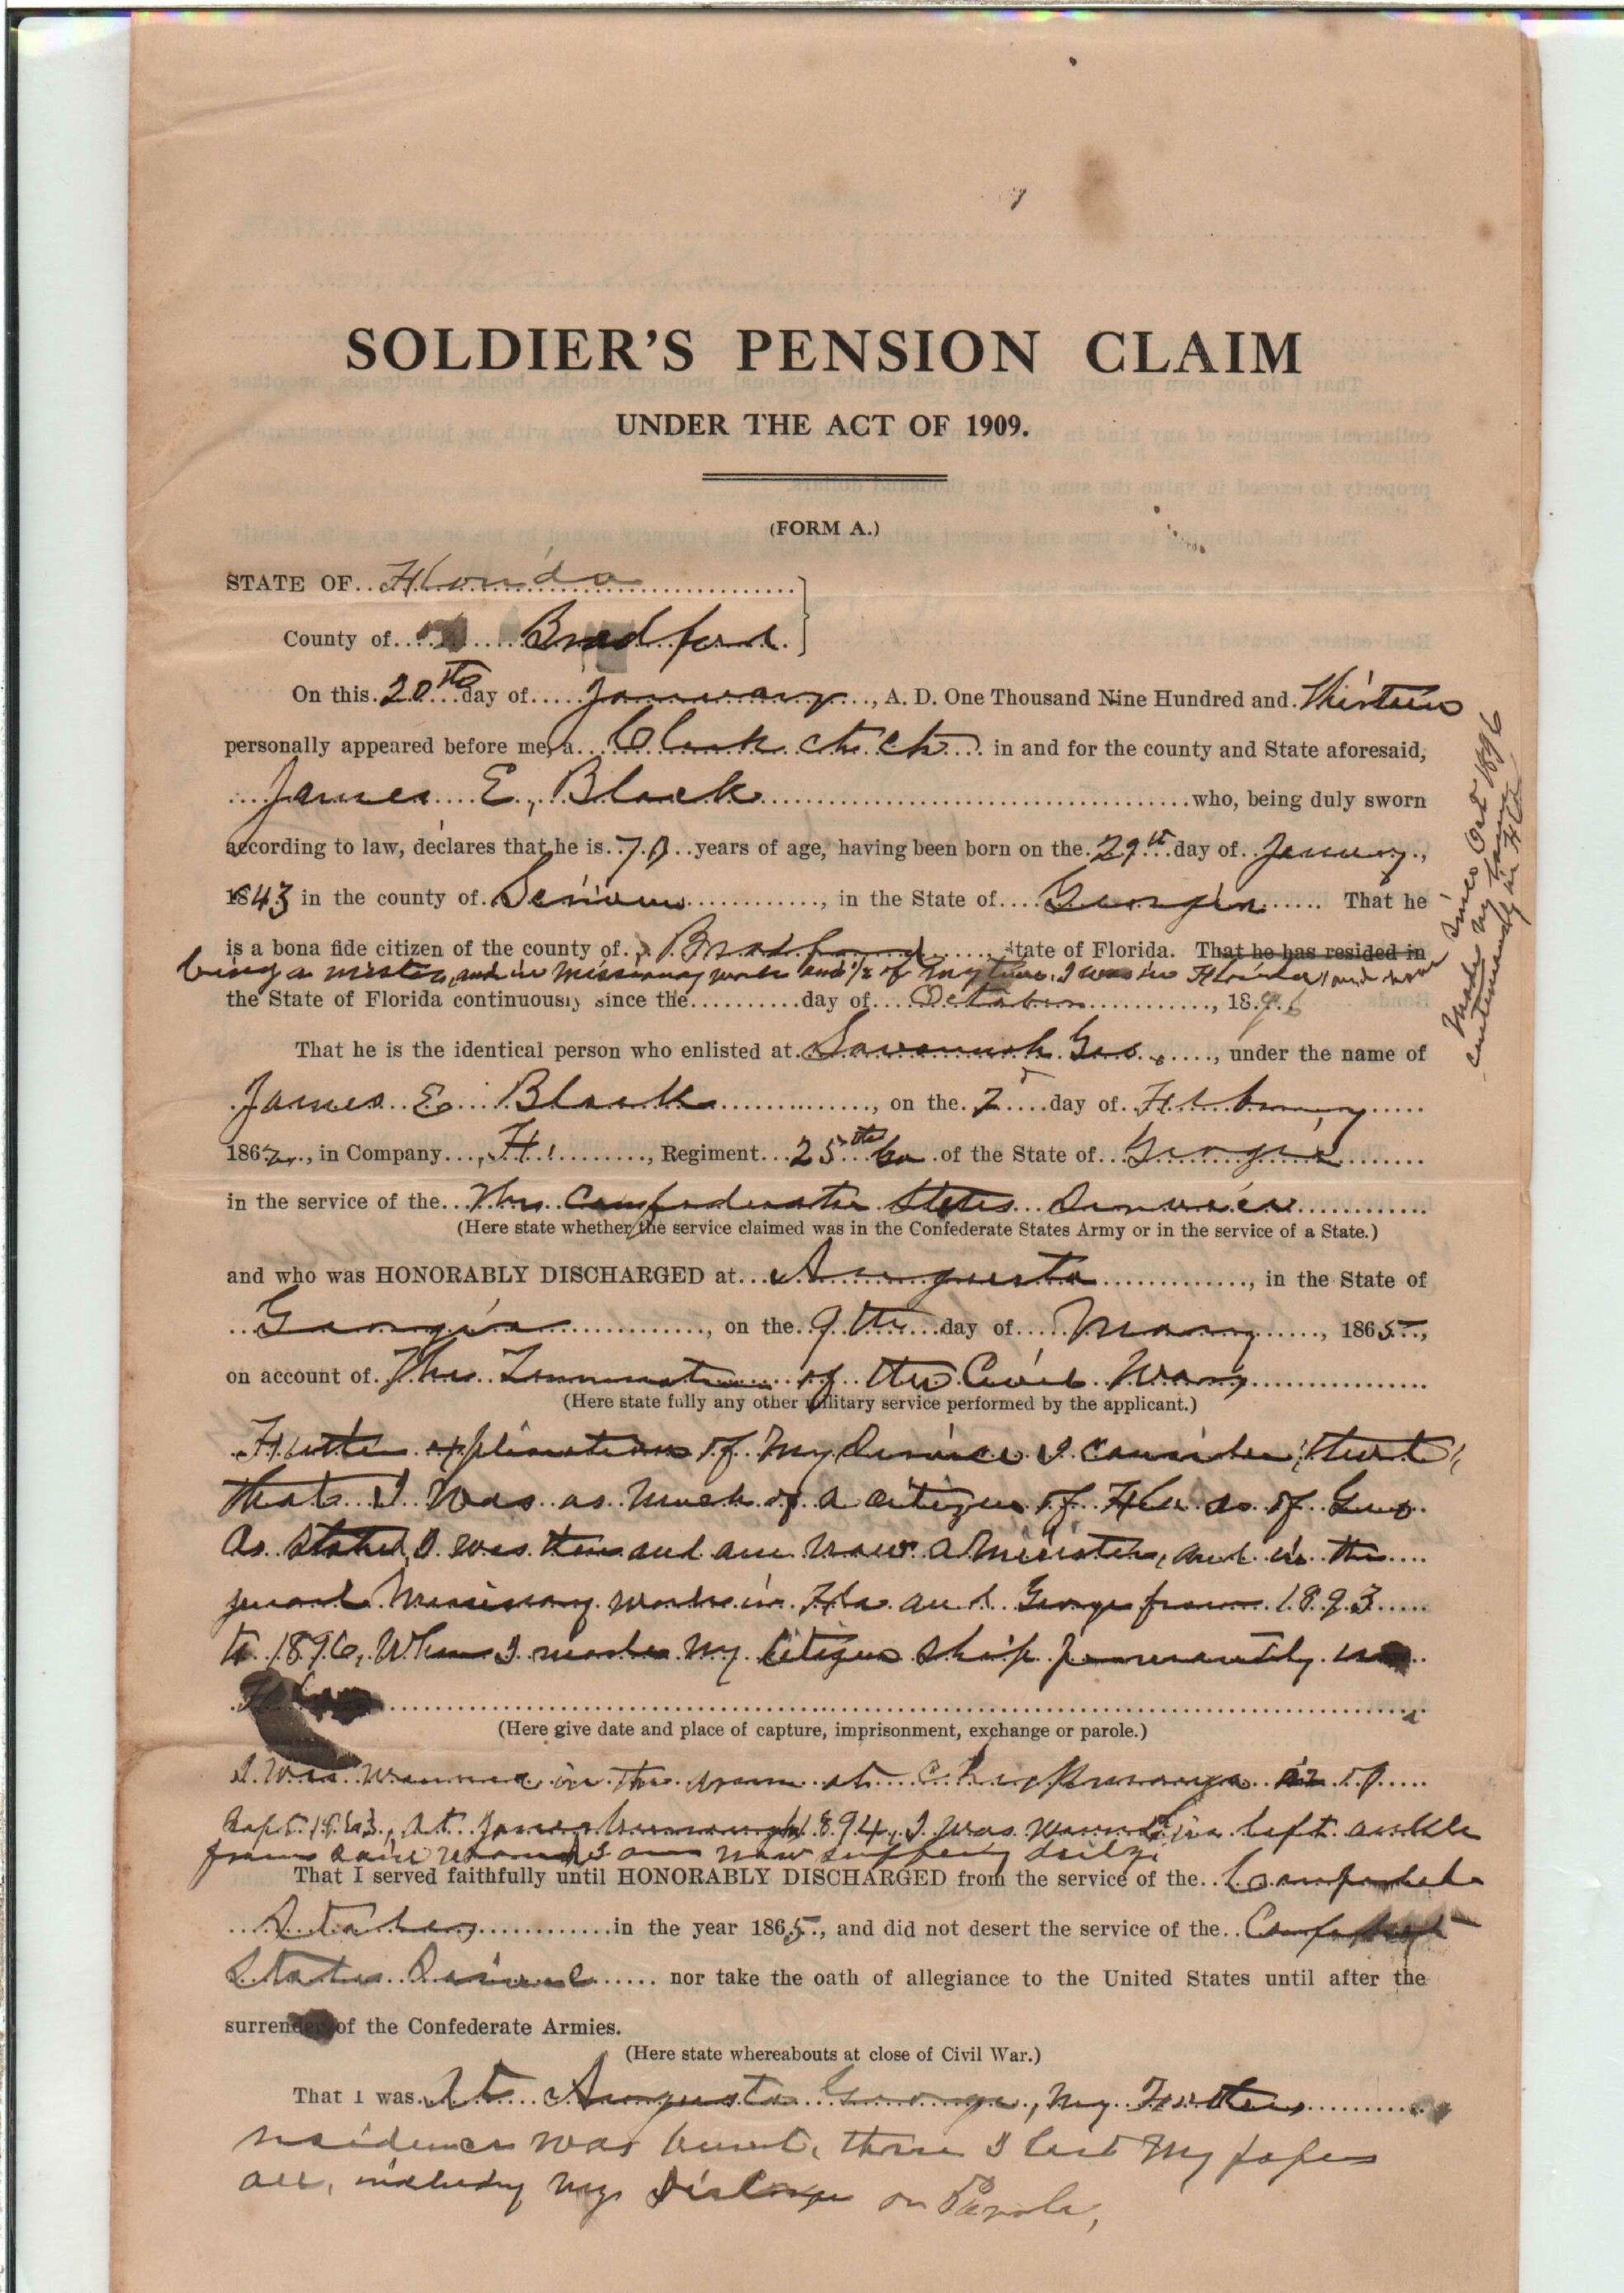 SOLDIER'S PENSION CLAIM
UNDER THE ACT OF 1909.
(FORM A.)
STATE OF Florida
County of Bradford
On this 20th day of January, A. D. One Thousand Nine Hundred and Thirteen
personally appeared before me, a Clerk in and for the county and State aforesaid,
James E. Black who, being duly sworn
according to law, declares that he is 70 years of age, having been born on the 29th day of January,
1843 in the county of Scriven, in the State of Georgia That he
is a bona fide citizen of the county of Bradford State of Florida. That he has resided in
being a minister, and in missionary work and 1/2 of my time I was in Florida, and have
made my home continuously in Fla since Oct 1896
the State of Florida continuously since the day of October, 1896
That he is the identical person who enlisted at Savannah Geo., under the name of
James E. Black, on the 2 day of February
1862, in Company H, Regiment 25th Ga of the State of Georgia
in the service of the The Confederate States Service
(Here state whether the service claimed was in the Confederate States Army or in the service of a State.)
and who was HONORABLY DISCHARGED at Augusta, in the State of
Georgia, on the 9th day of May, 1865,
on account of The Termination of the Civil War
(Here state fully any other military service performed by the applicant.)
Further explination of my Service I consider, that,
that I was as much of a citizen of Fla as of Geo
As stated, I was then and am now a Minister, and in the
general Missionary work in Fla and George from 1893
to 1896, When I made my Citizen ship permanently in
Fla
(Here give date and place of capture, imprisonment, exchange or parole.)
I was wounded in the arm at Chickamauga
Sept 1863, At Jonesborough 1894, I was wound in left ankle
from said wound I am now suffering daily.
That I served faithfully until HONORABLY DISCHARGED from the service of the Confederate
States in the year 1865, and did not desert the service of the Confederate
States Service nor take the oath of allegiance to the United States until after the
surrender of the Confederate Armies.
(Here state whereabouts at close of Civil War.)
That I was At Augusta George, My Fathers
residence was burnt, there I lost My papers
all, including my Discharge or Parole,